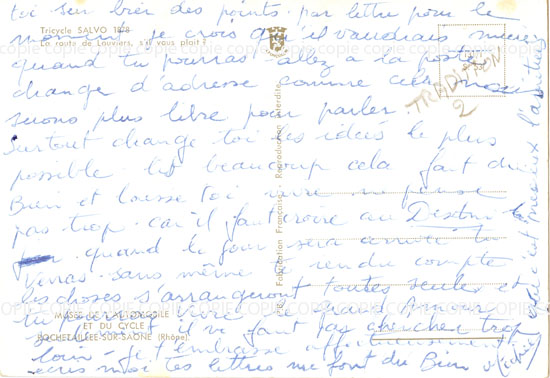 toi sur bien des points. par lettre pour le
moment je crois qu'il vaudrait mieux
quand tu pourras allez a la poste
change d'adresse comme ceci nous
serons plus libre pour parler.
Surtout change toi les idées le plus
possible lit beaucoup cela fait du
Bien et laisse toi vivre ne pense
pas trop car il faut croire au Destin
quand le jour sera arrivé tu
verras sans même rendre compte
les choses s'arrangeront toutes seules et
tu pourras vivre le grand Amour
il ne faut pas chercher trop
loin. je t'embrasse affectueusement
écris moi tes lettres me font du Bien
Tricycle SALVO 1878
La route de Louviers, s'il vous plaît ?
TRADITION
2
Fabrication Française - Reproduction interdite
MUSÉE DE L'AUTOMOBILE
ET DU CYCLE
ROCHETAILLÉE-SUR-SAONE (Rhône)
copie copie copie copie copie copie